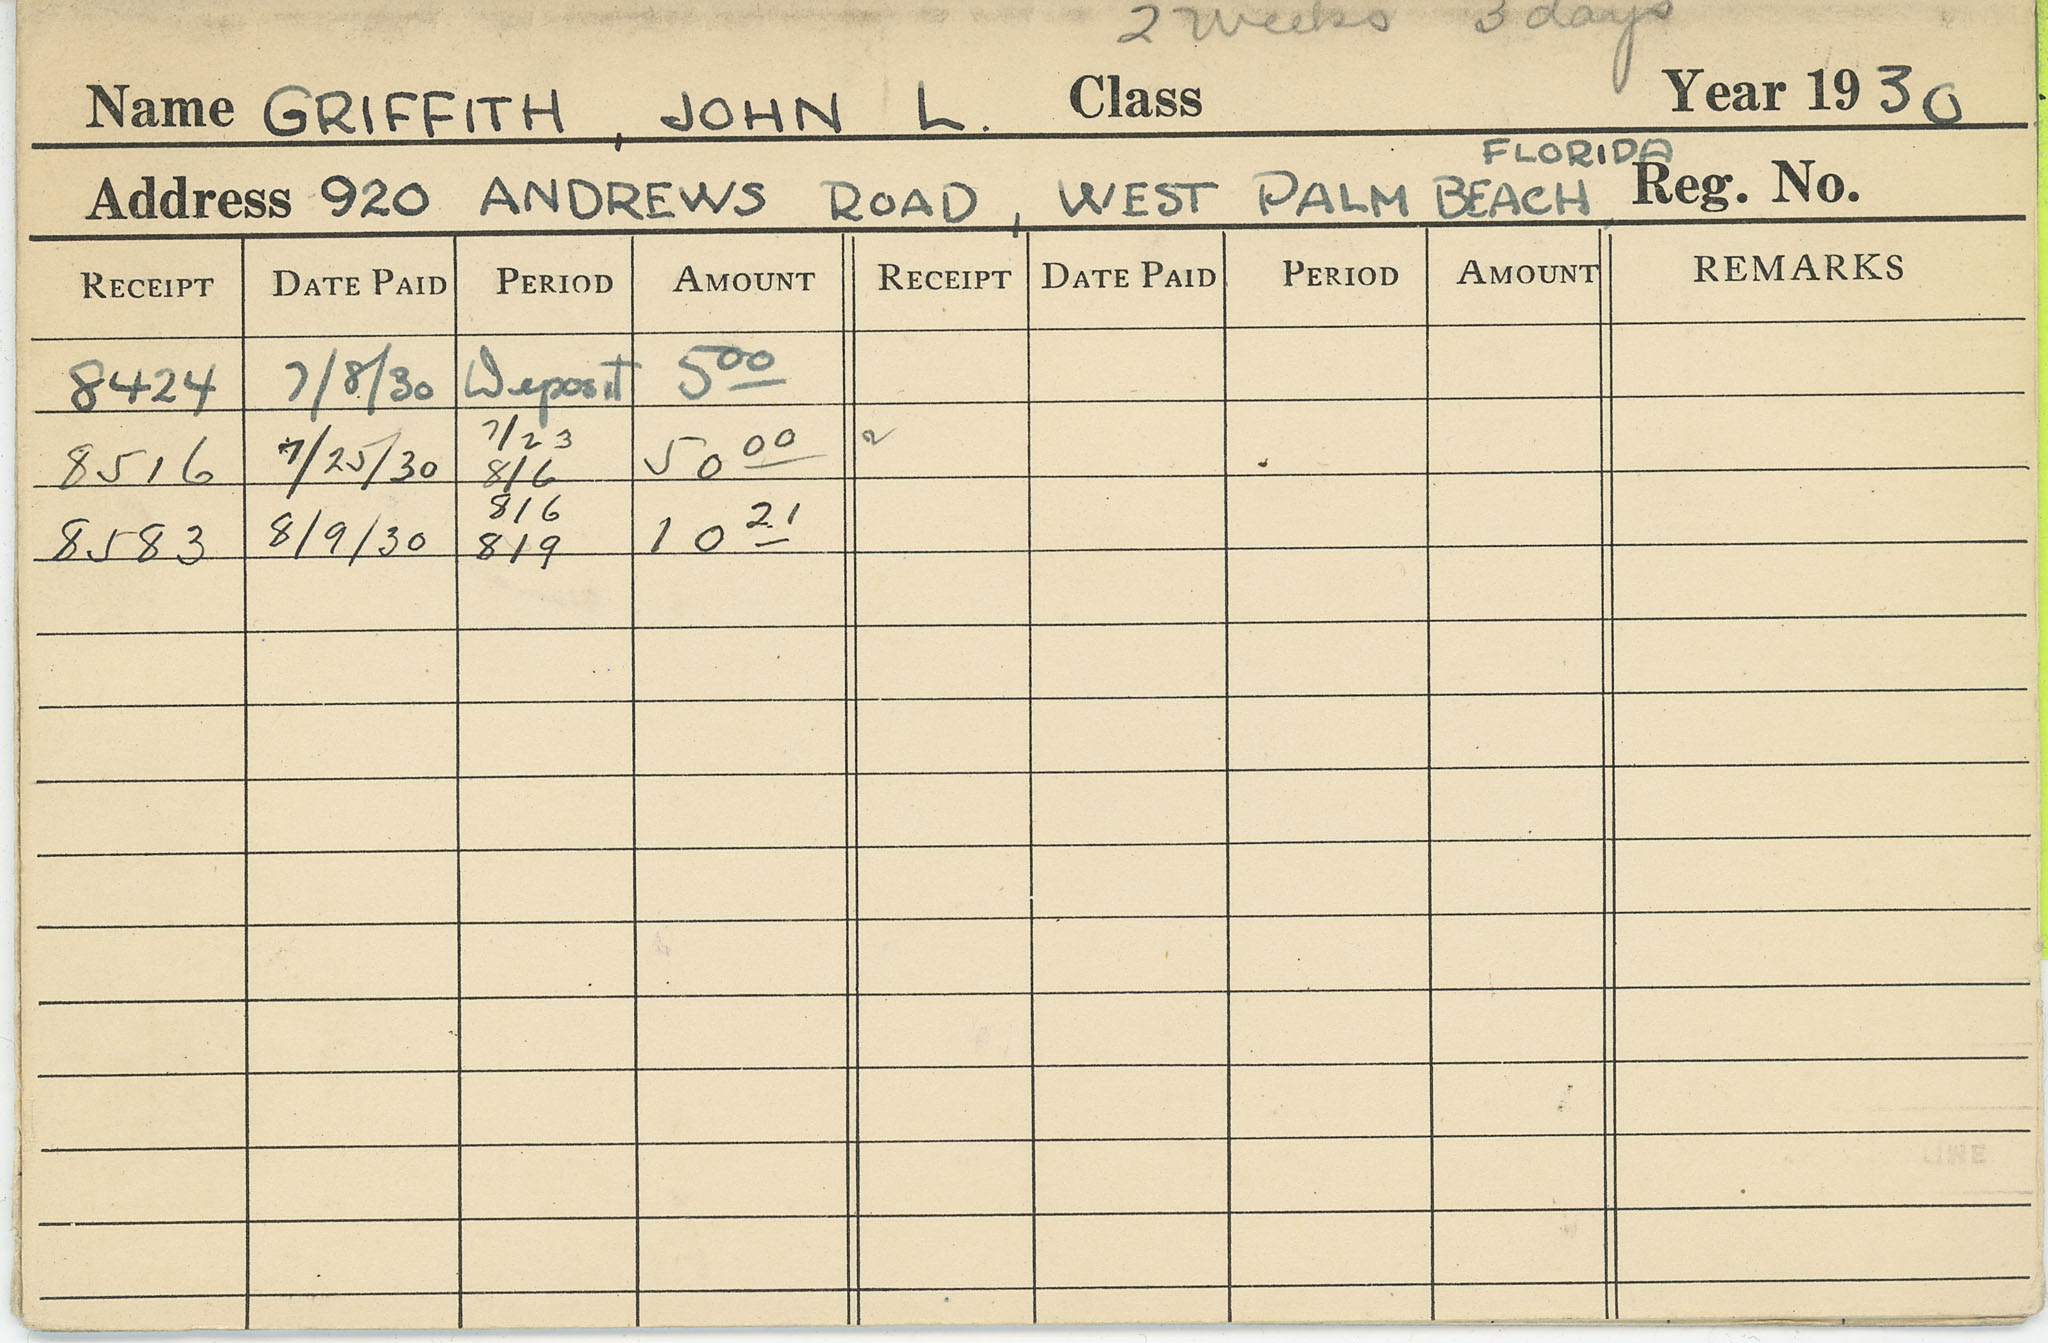 2 weeks 3 days
Name GRIFFITH, JOHN L. Class Year 1930
FLORIDA
Address 920 ANDREWS ROAD, WEST PALM BEACH Reg. No.
RECEIPT DATE PAID PERIOD AMOUNT RECEIPT DATE PAID PERIOD AMOUNT REMARKS
8424 7/8/30 Deposit 5 00
7/23
8516 7/25/30 8/6 50 00
8/6
8583 8/9/30 8/9 10 21